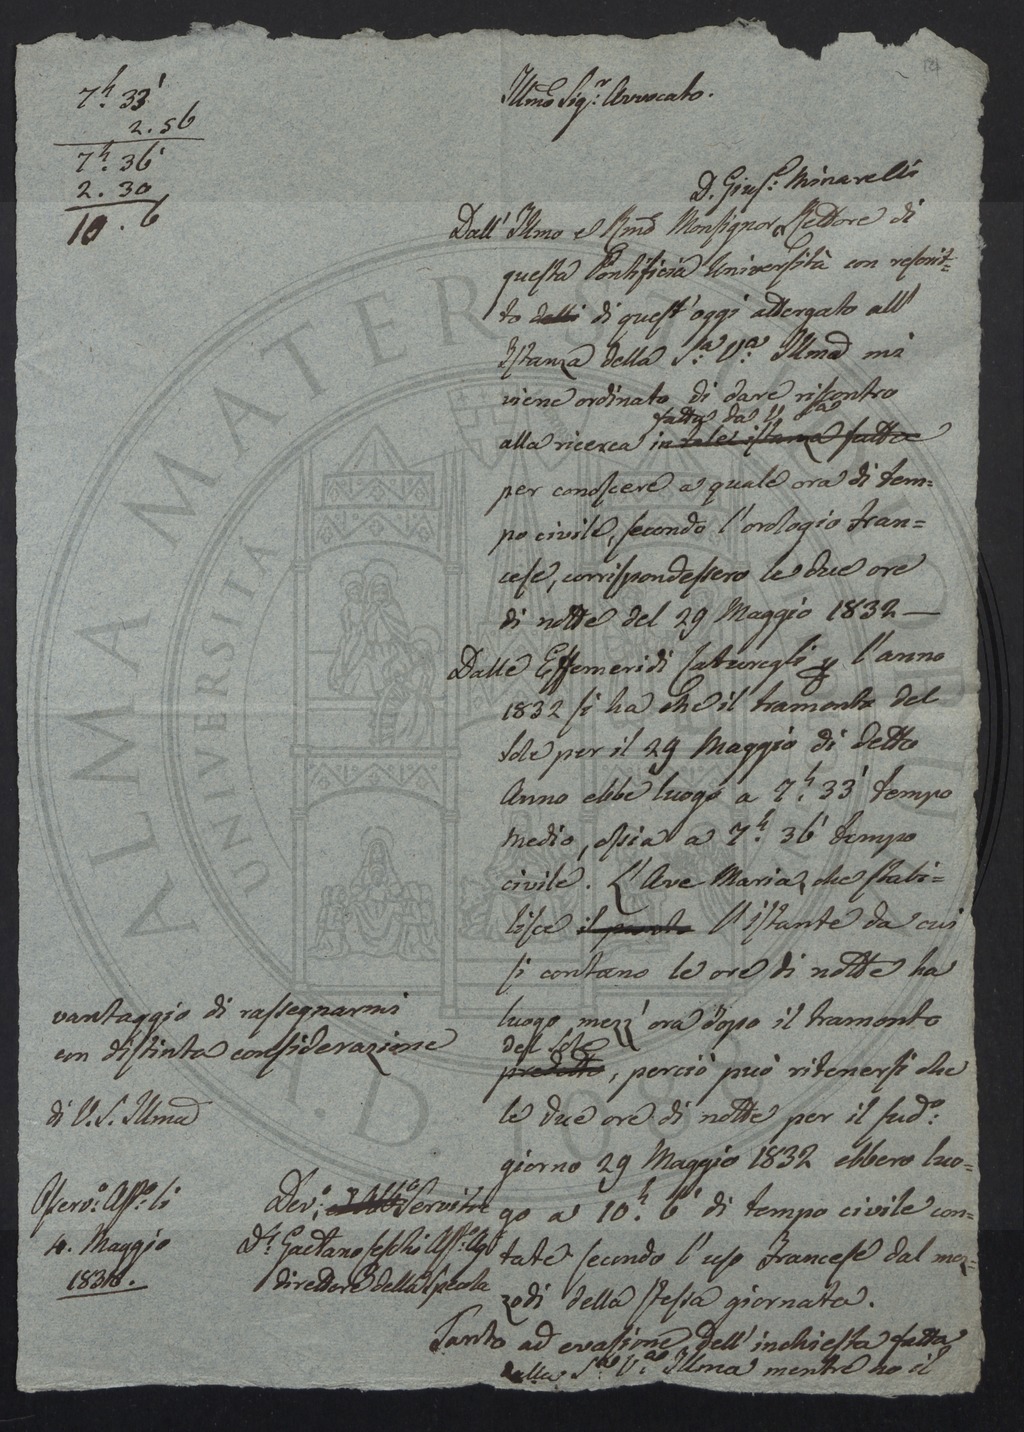 7.h 33'
2.56
7.h 36'
2.30
10.6
Illmo Sig.r Avvocato.
D. Gius.e Minarelli
Dall' Illmo e Rmo Monsignor Rettore di
questa Pontificia Università con rescrit=
to delli di quest'oggi attergato all'
Istanza della S.a V.a Illma mi
viene ordinato di dare riscontro
fatta da
alla ricerca in istanza fatta
per conoscere a quale ora di tem=
po civile, secondo l'orologio fran=
cese, corrispondessero le due ore
di notte del 29 Maggio 1832 —
Dalle Effemeridi Caturegli p l'anno
1832 si ha che il tramonto del
Sole per il 29 Maggio di detto
Anno ebbe luogo a 7.h 33' tempo
medio, ossia a 7.h 36' tempo
civile. L'Ave Maria, che stabi=
lisce il punto l'istante da cui
si contano le ore di notte ha
luogo mezz'ora dopo il tramonto
del Sole
predetto, perciò può ritenersi che
le due ore di notte per il sud.o:
giorno 29 Maggio 1832 ebbero luo=
go a 10.h 6' di tempo civile con=
tate secondo l'uso Francese dal mez=
zodì della stessa giornata.
Tanto ad evasione dell'inchiesta fatta
dalla S.a V.a Illma mentre ho il
vantaggio di rassegnarmi
con distinta considerazione
di V. S. Illma
Osserv.o Ass.o li
4. Maggio
Dev.o Servitore
D.r Gaetano Ceschi Ass.o Agt
direttore della Specola
ALMA MATER STUDIORUM
UNIVERSITÀ
A.D. 1088